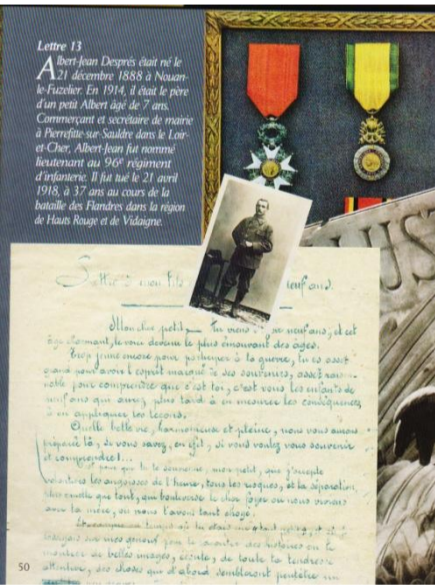 Lettre 13
Albert-Jean Després était né le
21 décembre 1888 à Nouan-
le-Fuzelier. En 1914, il était le père
d'un petit Albert âgé de 7 ans.
Commerçant et secrétaire de mairie
à Pierrefitte-sur-Sauldre dans le Loir-
et-Cher, Albert-Jean fut nommé
lieutenant au 96e régiment
d'infanterie. Il fut tué le 21 avril
1918, à 37 ans au cours de la
bataille des Flandres dans la région
de Hauts Rouge et de Vidaigne.
mon fils neuf ans.
Mon cher petit, Tu viens neuf ans, et cet
âge charmant, le voici devenu le plus émouvant des âges.
Trop jeune encore pour participer à la guerre, tu es assez
grand pour avoir l'esprit marqué de ses souvenirs, assez raison-
nable pour comprendre que c'est toi, c'est vous les enfants de
neuf ans qui aurez plus tard à en mesurer les conséquences
à en appliquer les leçons.
Quelle belle vie, harmonieuse et pleine, nous vous aurons
préparé là, si vous savez, en effet, si vous voulez vous souvenir
et comprendre !...
pour que tu te souviennes, mon petit, que j'accepte
volontiers les angoisses de l'heure, tous les risques, et la séparation,
plus cruelle que tout, qui bouleverse le cher foyer où nous vivions
avec ta mère, où nous t'avons tant choyé.
temps où tu étais
sur mes genoux pour te raconter des histoires ou te
montrer de belles images, écoute, de toute ta tendresse
attentive, des choses qui d'abord sembleront peut-être un
50
UST